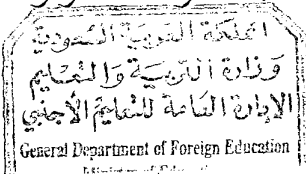 المملكة العربية السعودية
وزارة التربية والتعليم
الإدارة العامة للتعليم الأجنبي
General Department of Foreign Education
Ministry of Education